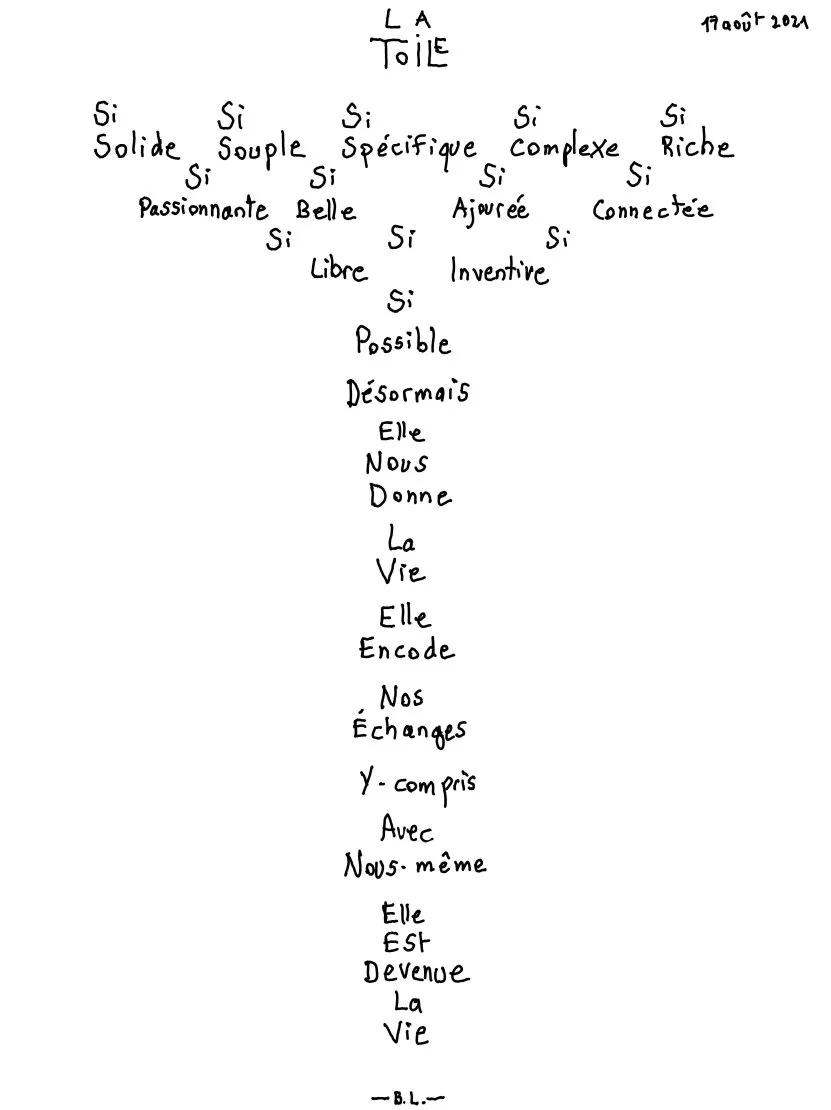 LA
TOILE
17 août 2021
Si Si Si Si Si
Solide Souple Spécifique Complexe Riche
Si Si Si Si
Passionnante Belle Ajourée Connectée
Si Si Si
Libre Inventive
Si
Possible
Désormais
Elle
Nous
Donne
La
Vie
Elle
Encode
Nos
Échanges
Y-compris
Avec
Nous-même
Elle
Est
Devenue
La
Vie
—B.L.—